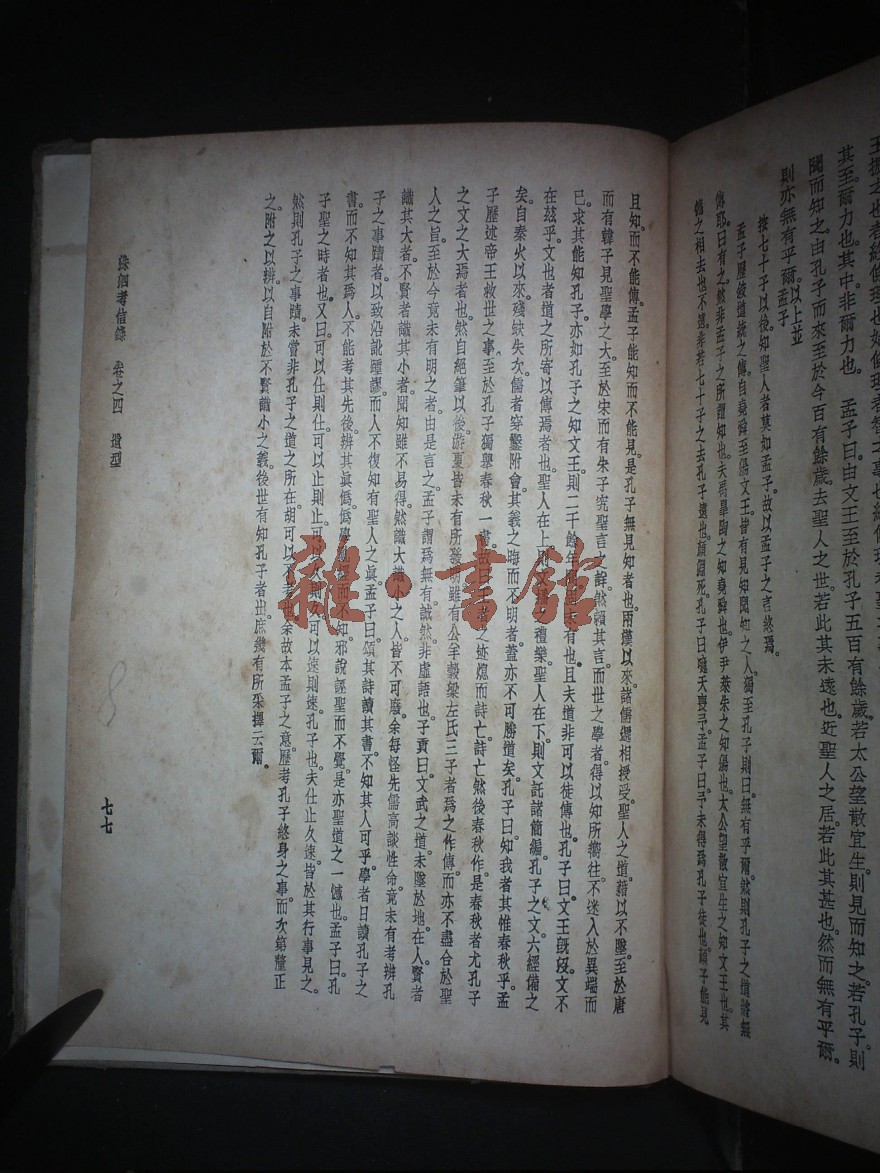 其至爾力也。其中非爾力也。　孟子曰由文王至於孔子五百有餘歲。若太公望散宜生則見而知之。若孔子則
聞而知之。由孔子而來至於今百有餘歲。去聖人之世若此其未遠也。近聖人之居若此其甚也。然而無有乎爾。
則亦無有乎爾。以上並孟子
按七十子以後知聖人者莫如孟子。故以孟子之言終焉。
孟子歷敘道統之傳。自堯舜至湯文王皆有見知聞知之人。獨至孔子則曰無有乎爾。然則孔子之道將無
傳耶。曰有之。然非孟子之所謂知也。夫禹皋陶之知堯舜也。伊尹萊朱之知湯也。太公望散宜生之知文王也。其
德之相去也不遠。非若七十子之去孔子遠也。顏淵死。孔子曰噫天喪予。孟子曰予未得爲孔子徒也。顏子能見
且知。而不能傳。孟子能知而不能見。是孔子無見知者也。兩漢以來諸儒遞相授受。聖人之道藉以不墜。至於唐
而有韓子見聖學之大。至於宋而有朱子究聖言之詮。然賴其言。而世之學者得以知所嚮往。不迷入於異端而
已。求其能知孔子亦如孔子之知文王。則二千餘年 未有也。且夫道非可以徒傳也。孔子曰。文王旣歿。文不
在茲乎。文也者道之所寄以傳焉者也。聖人在上則文 禮樂。聖人在下。則文託諸簡編。孔子之文。六經備之
矣。自秦火以來。殘缺失次。儒者穿鑿附會。其義之晦而不明者。蓋亦不可勝道矣。孔子曰。知我者其惟春秋乎。孟
子歷述帝王救世之事。至於孔子獨舉春秋一書。故曰王者之迹熄而詩亡。詩亡然後春秋作。是春秋者尤孔子
之文之大焉者也。然自絕筆以後。游夏皆未有所發明。雖有公羊穀梁左氏三子者爲之作傳。而亦不盡合於聖
人之旨。至於今竟未有明之者。由是言之。孟子謂爲無有。誠然非虛語也。子貢曰。文武之道。未墜於地。在人。賢者
識其大者。不賢者識其小者。聞知雖不易得。然識大識小之人皆不可廢。余每怪先儒高談性命。竟未有考辨孔
子之事蹟者。以致沿訛踵謬。而人不復知有聖人之眞。孟子曰。頌其詩。讀其書。不知其人可乎。學者日讀孔子之
書而不知其爲人。不能考其先後。辨其眞僞。僞學 經而不知。邪說誣聖而不覺。是亦聖道之一憾也。孟子曰。孔
子聖之時者也。又曰。可以仕則仕。可以止則止。可以久則久。可以速則速。孔子也。夫仕止久速皆於其行事見之。
然則孔子之事蹟。未嘗非孔子之道之所在。胡可以不考也。余故本孟子之意。歷考孔子終身之事。而次第釐正
之。附之以辨。以自附於不賢識小之義。後世有知孔子者出。庶幾有所采擇云爾。
洙泗考信錄　卷之四　遺型
七七
雜·書館